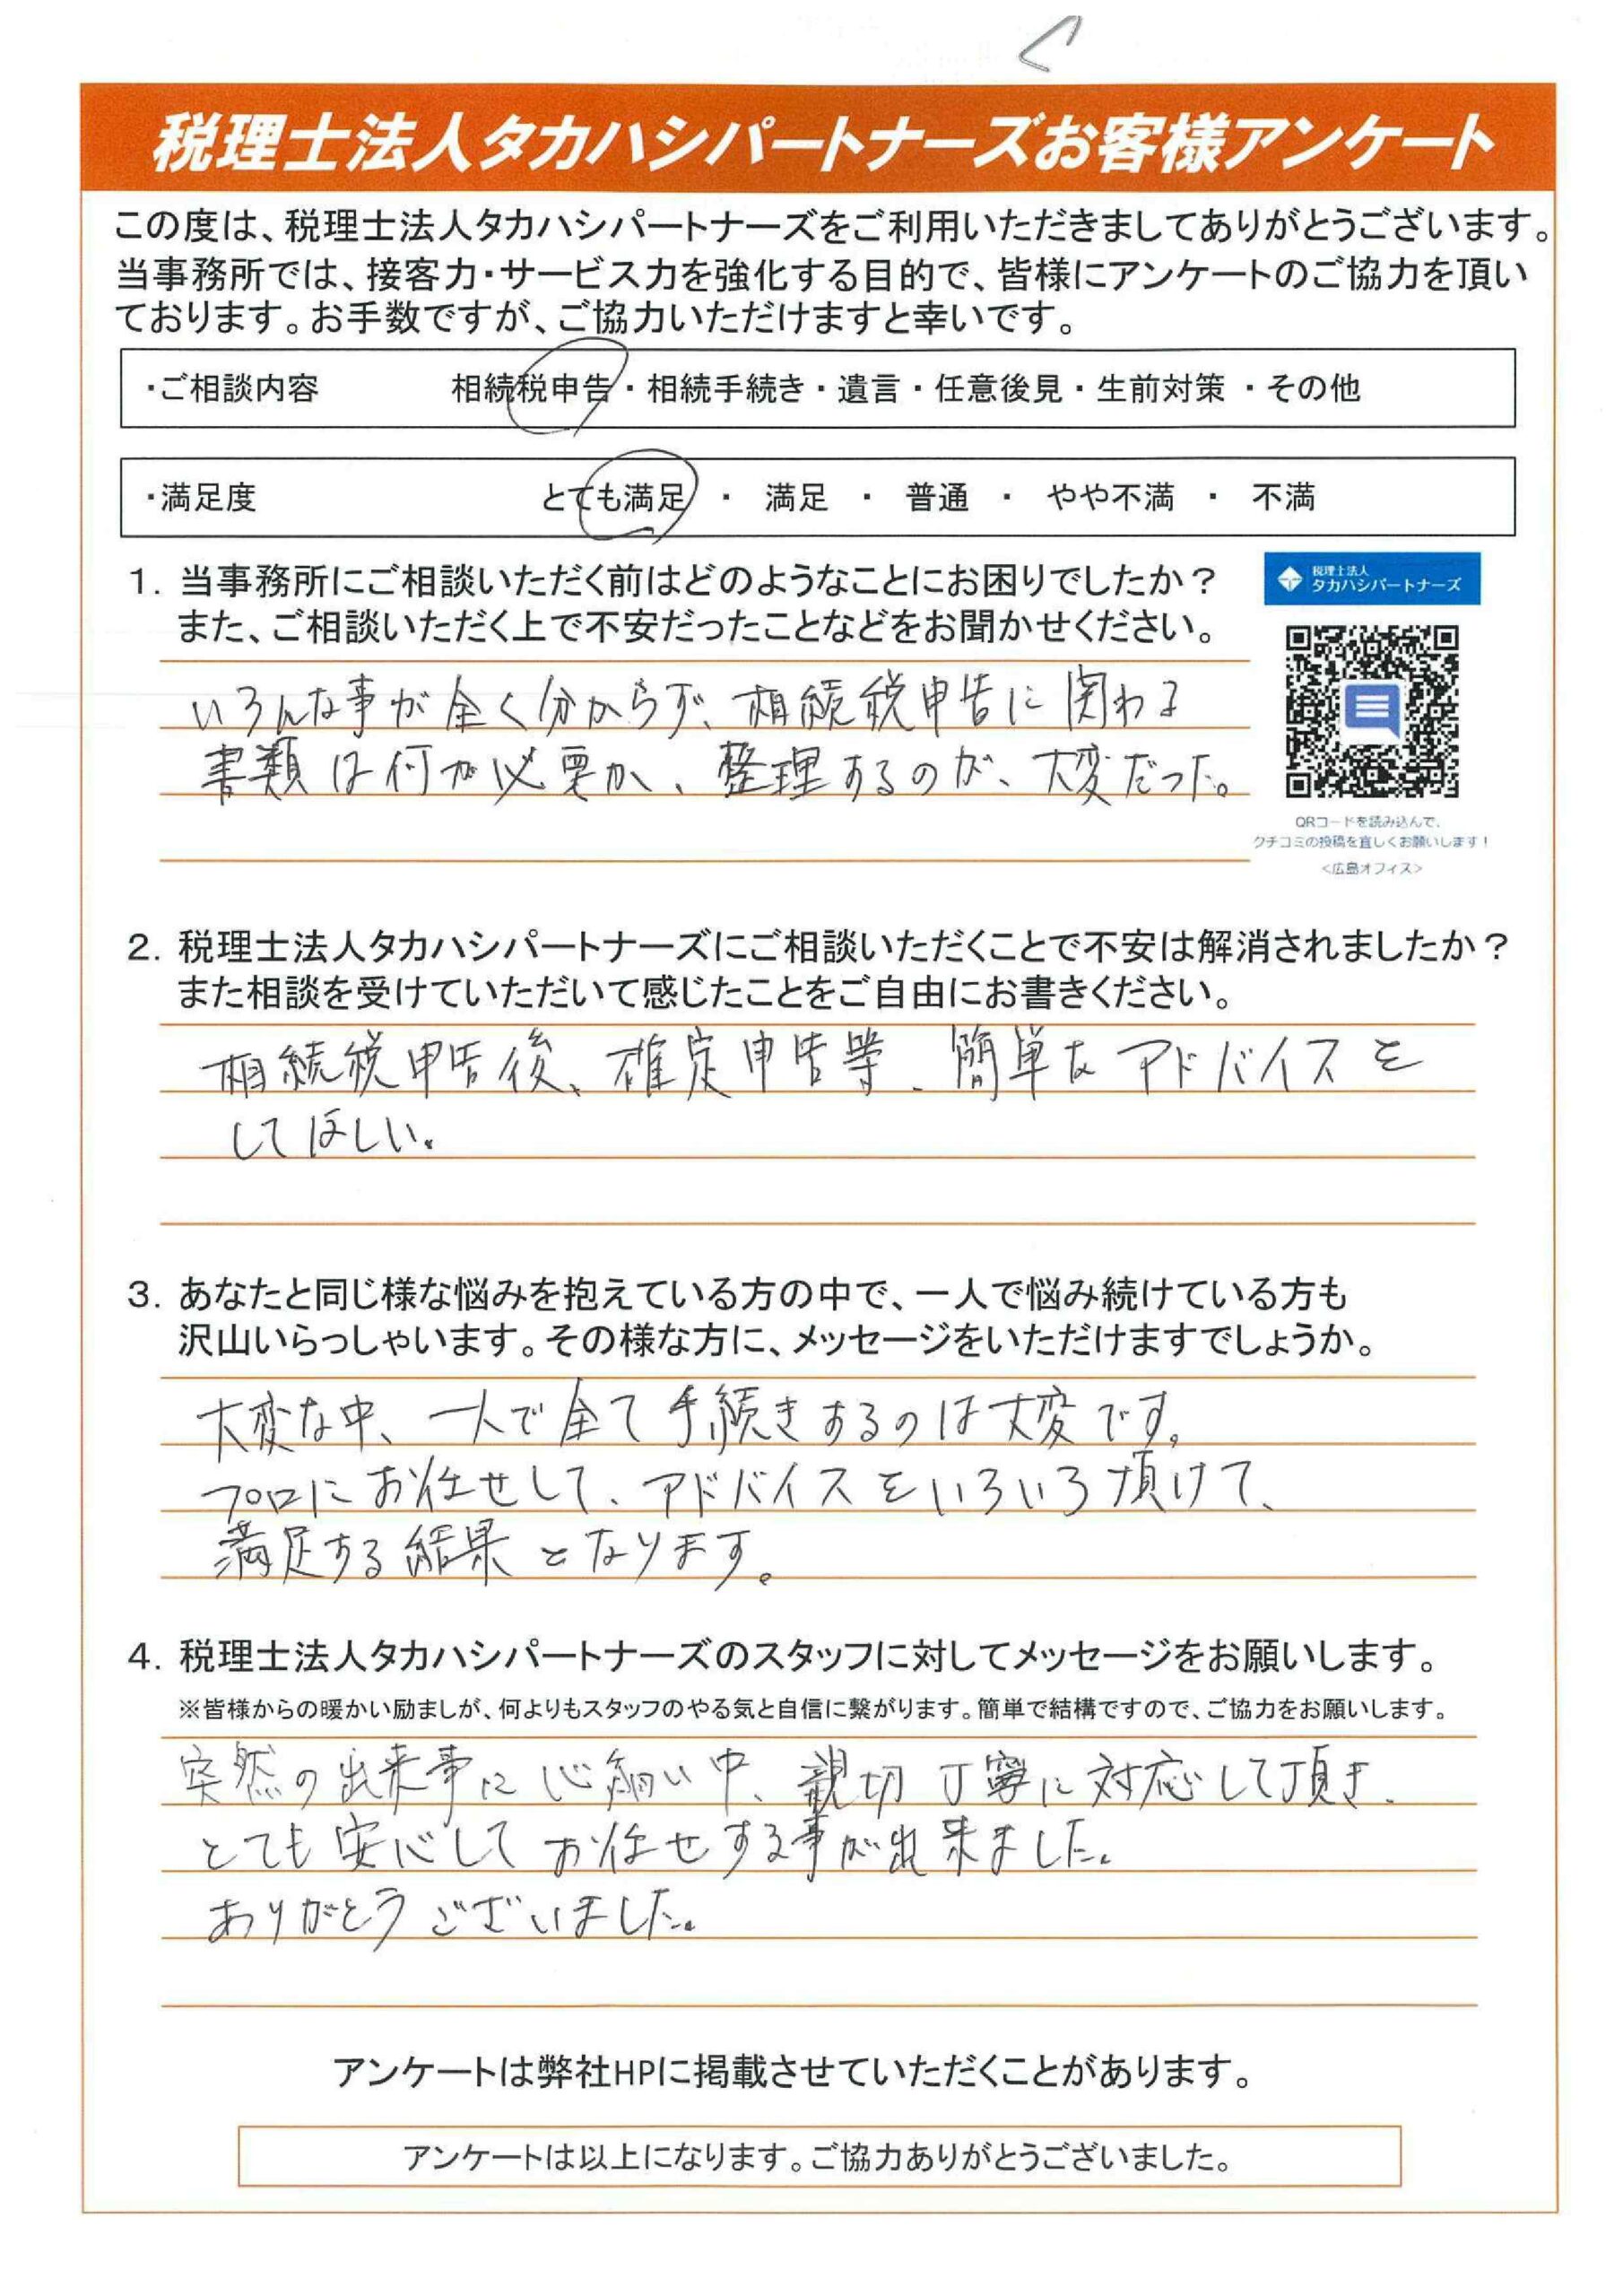 税理士法人タカハシパートナーズお客様アンケート
この度は、税理士法人タカハシパートナーズをご利用いただきましてありがとうございます。
当事務所では、接客力・サービス力を強化する目的で、皆様にアンケートのご協力を頂い
ております。お手数ですが、ご協力いただけますと幸いです。
・ご相談内容 相続税申告・相続手続き・遺言・任意後見・生前対策・その他
・満足度 とても満足 ・ 満足 ・ 普通 ・ やや不満 ・ 不満
1. 当事務所にご相談いただく前はどのようなことにお困りでしたか?
また、ご相談いただく上で不安だったことなどをお聞かせください。
いろんな事が全く分からず、相続税申告に関わる
書類は何が必要か、整理するのが、大変だった。
税理士法人
タカハシパートナーズ
QRコードを読み込んで、
クチコミの投稿を宜しくお願いします!
<広島オフィス>
2. 税理士法人タカハシパートナーズにご相談いただくことで不安は解消されましたか?
また相談を受けていただいて感じたことをご自由にお書きください。
相続税申告後、確定申告等、簡単なアドバイスを
してほしい。
3. あなたと同じ様な悩みを抱えている方の中で、一人で悩み続けている方も
沢山いらっしゃいます。その様な方に、メッセージをいただけますでしょうか。
大変な中、一人で全て手続きするのは大変です。
プロにお任せして、アドバイスをいろいろ頂けて、
満足する結果となります。
4. 税理士法人タカハシパートナーズのスタッフに対してメッセージをお願いします。
※皆様からの暖かい励ましが、何よりもスタッフのやる気と自信に繋がります。簡単で結構ですので、ご協力をお願いします。
突然の出来事に心細い中、親切丁寧に対応して頂き、
とても安心してお任せする事が出来ました。
ありがとうございました。
アンケートは弊社HPに掲載させていただくことがあります。
アンケートは以上になります。ご協力ありがとうございました。